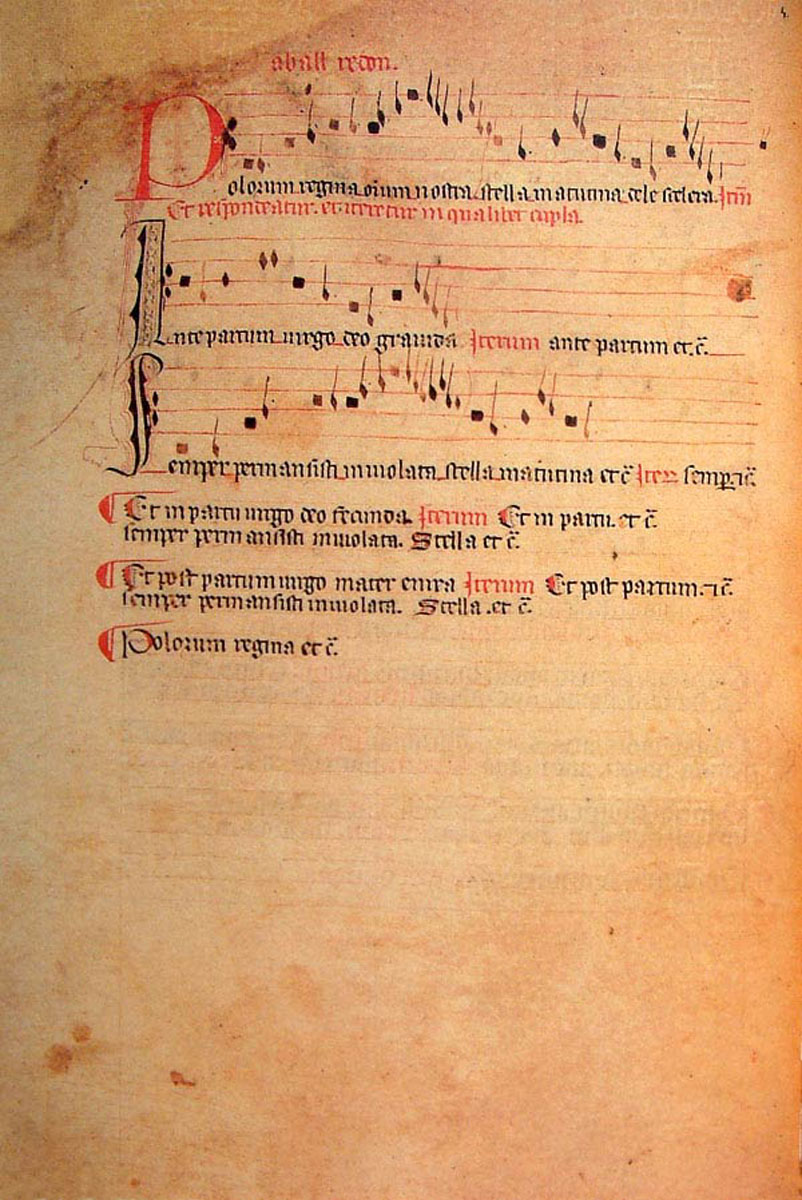 a ball redon.
Polorum regina oium nostra. stella matutina dele scelera. Itm
Et respondeatur. et iteretur in qualibet cupla.
Ante partum uirgo deo grauida Iterum ante partum et c̃.
Semper permansisti inuiolata. stella matutina et c̃ Iter semper ⁊ c̃
¶ Et in partu uirgo deo fecunda. Iterum Et in partu. et c̃.
semper permansisti inuiolata. Stella et c̃.
¶ Et post partum uirgo mater enixa Iterum Et post partum. ⁊ c̃.
semper permansisti inuiolata. Stella. et c̃.
¶ Polorum regina et c̃.